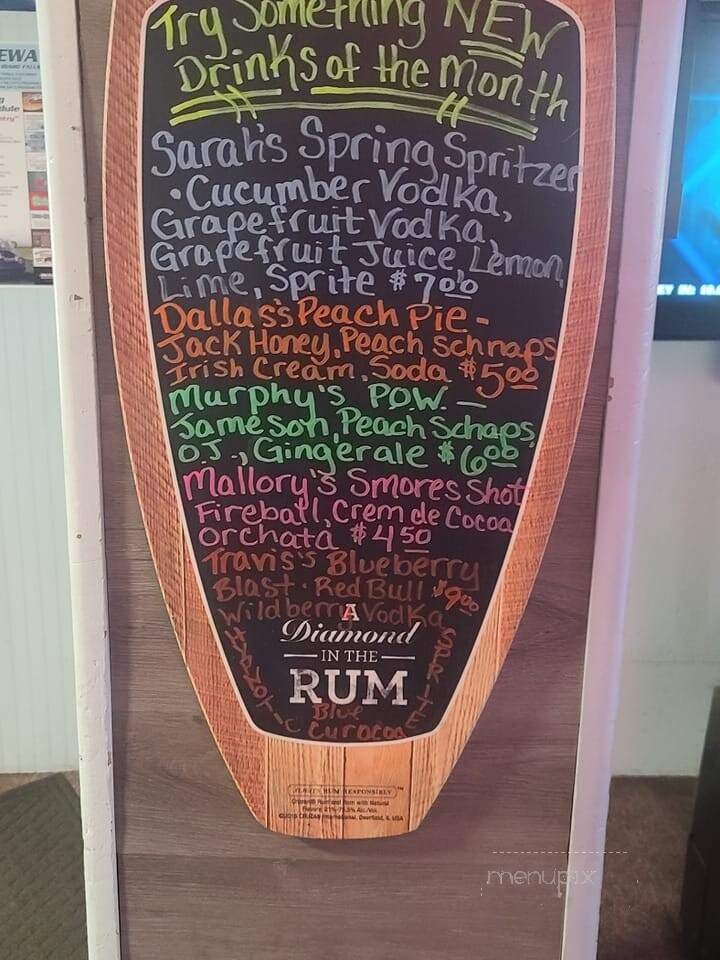 Try Something NEW
Drinks of the Month
Sarah's Spring Spritzer
• Cucumber Vodka,
Grapefruit Vodka,
Grapefruit Juice Lemon,
Lime, Sprite $7.00
Dallas's Peach Pie -
Jack Honey, Peach schnaps
Irish Cream, Soda $5.00
Murphy's POW. -
Jameson, Peach Schaps,
OJ., Gingerale $6.00
Mallory's Smores Shot
Fireball, Crem de Cocoa
Orchata $4.50
Travis's Blueberry
Blast - Red Bull $9.00
Wildberry Vodka
HYPNOTIC
SPRITE
A
Diamond
IN THE
RUM
Blue
Curacoa
RUM RESPONSIBLY
EWA
menupix